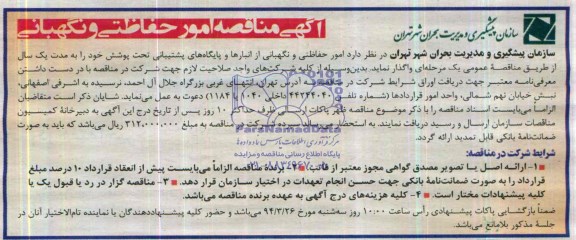 آگهی مناقصه امور حفاظتی و نگهبانی
سازمان پیشگیری و مدیریت بحران شهر تهران
سازمان پیشگیری و مدیریت بحران شهر تهران در نظر دارد امور حفاظتی و نگهبانی از انبارها و پایگاه‌های پشتیبانی تحت پوشش خود را به مدت یک سال
از طریق مناقصه عمومی یک مرحله‌ای واگذار نماید. بدین‌وسیله از کلیه شرکت‌های واجد صلاحیت لازم جهت شرکت در مناقصه با در دست داشتن
معرفی‌نامه معتبر جهت دریافت اوراق شرایط شرکت در مناقصه به آدرس تهران، انتهای غربی بزرگراه جلال آل احمد، نرسیده به اشرفی اصفهانی،
نبش خیابان نهم شمالی، واحد امور قراردادها (شماره تلفن ۴۴۲۴۴۰۴۰ داخلی ۱۱۸۴) دعوت به عمل می‌نماید. شایان ذکر است متقاضیان
الزاماً می‌بایست اسناد مناقصه را با ذکر موضوع مناقصه ظهر پاکات ظرف حداکثر ۱۰ روز پس از تاریخ درج این آگهی به دبیرخانه کمیسیون
مناقصات سازمان ارسال و رسید دریافت نمایند. سپرده شرکت در مناقصه به مبلغ ۳۱۲,۰۰۰,۰۰۰ ریال می‌باشد که باید به صورت
ضمانت‌نامه بانکی قابل تمدید ارائه گردد.
شرایط شرکت در مناقصه:
۱- ارائه اصل یا تصویر مصدق گواهی مجوز معتبر از ۲- برنده مناقصه الزاماً می‌بایست پیش از انعقاد قرارداد ۱۰ درصد مبلغ
قرارداد را به صورت ضمانت‌نامه بانکی جهت حسن انجام تعهدات در اختیار سازمان قرار دهد. ۳- مناقصه گزار در رد یا قبول یک یا
کلیه پیشنهادات مختار است. ۴- کلیه هزینه‌های درج آگهی به عهده برنده مناقصه می‌باشد.
ضمناً بازگشایی پاکات پیشنهادی رأس ساعت ۱۰:۰۰ روز سه‌شنبه مورخ ۹۴/۳/۲۶ می‌باشد و حضور کلیه پیشنهاددهندگان یا نماینده تام‌الاختیار آنان در
جلسه مذکور بلامانع می‌باشد.
ParsNamadData